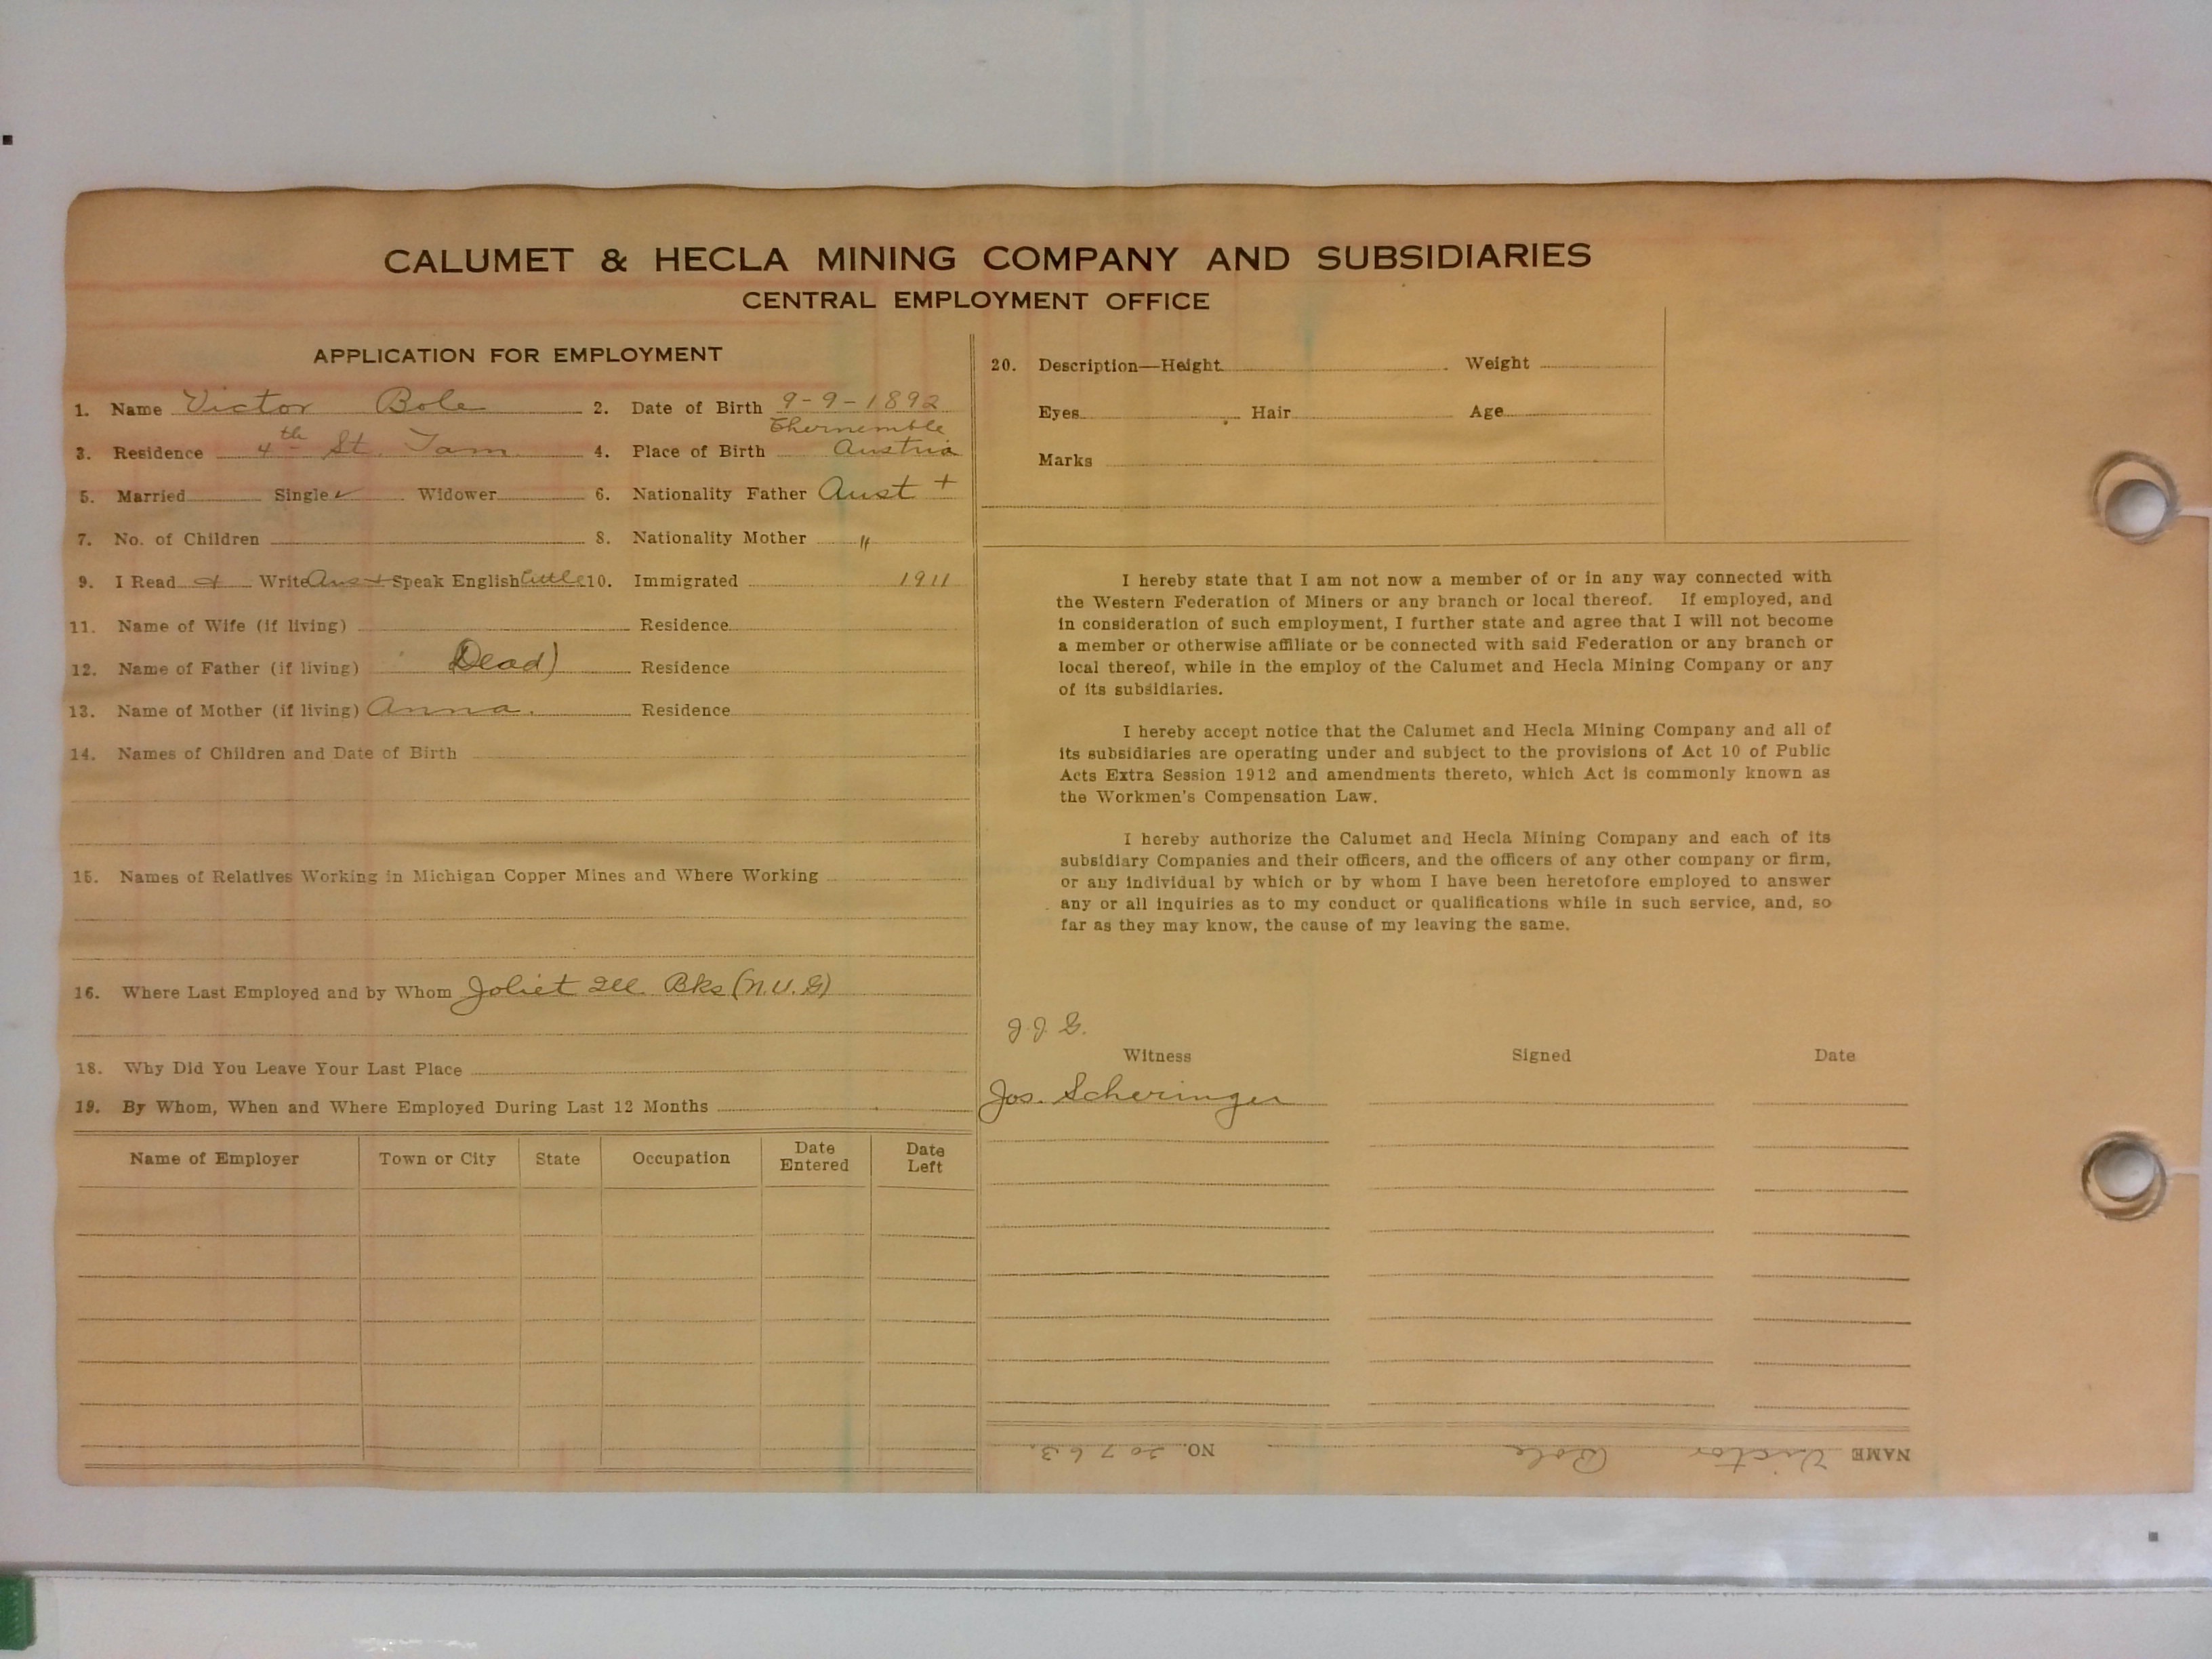 CALUMET & HECLA MINING COMPANY AND SUBSIDIARIES
CENTRAL EMPLOYMENT OFFICE
APPLICATION FOR EMPLOYMENT
1. Name Victor Bole 2. Date of Birth 9-9-1892
Chernemble
3. Residence 4th St. Tam. 4. Place of Birth Austria
5. Married Single ✓ Widower 6. Nationality Father Aust +
7. No. of Children 8. Nationality Mother "
9. I Read & Write Aust Speak English little 10. Immigrated 1911
11. Name of Wife (if living) Residence
12. Name of Father (if living) (Dead) Residence
13. Name of Mother (if living) Anna. Residence
14. Names of Children and Date of Birth
15. Names of Relatives Working in Michigan Copper Mines and Where Working
16. Where Last Employed and by Whom Joliet Ill Bks (N.U.G)
18. Why Did You Leave Your Last Place
19. By Whom, When and Where Employed During Last 12 Months
Name of Employer Town or City State Occupation Date Entered Date Left
20. Description—Height Weight
Eyes Hair Age
Marks
I hereby state that I am not now a member of or in any way connected with
the Western Federation of Miners or any branch or local thereof. If employed, and
in consideration of such employment, I further state and agree that I will not become
a member or otherwise affiliate or be connected with said Federation or any branch or
local thereof, while in the employ of the Calumet and Hecla Mining Company or any
of its subsidiaries.
I hereby accept notice that the Calumet and Hecla Mining Company and all of
its subsidiaries are operating under and subject to the provisions of Act 10 of Public
Acts Extra Session 1912 and amendments thereto, which Act is commonly known as
the Workmen's Compensation Law.
I hereby authorize the Calumet and Hecla Mining Company and each of its
subsidiary Companies and their officers, and the officers of any other company or firm,
or any individual by which or by whom I have been heretofore employed to answer
any or all inquiries as to my conduct or qualifications while in such service, and, so
far as they may know, the cause of my leaving the same.
J.J.G.
Witness Signed Date
Jos. Scheringer
NAME Victor Bole NO. 20763.